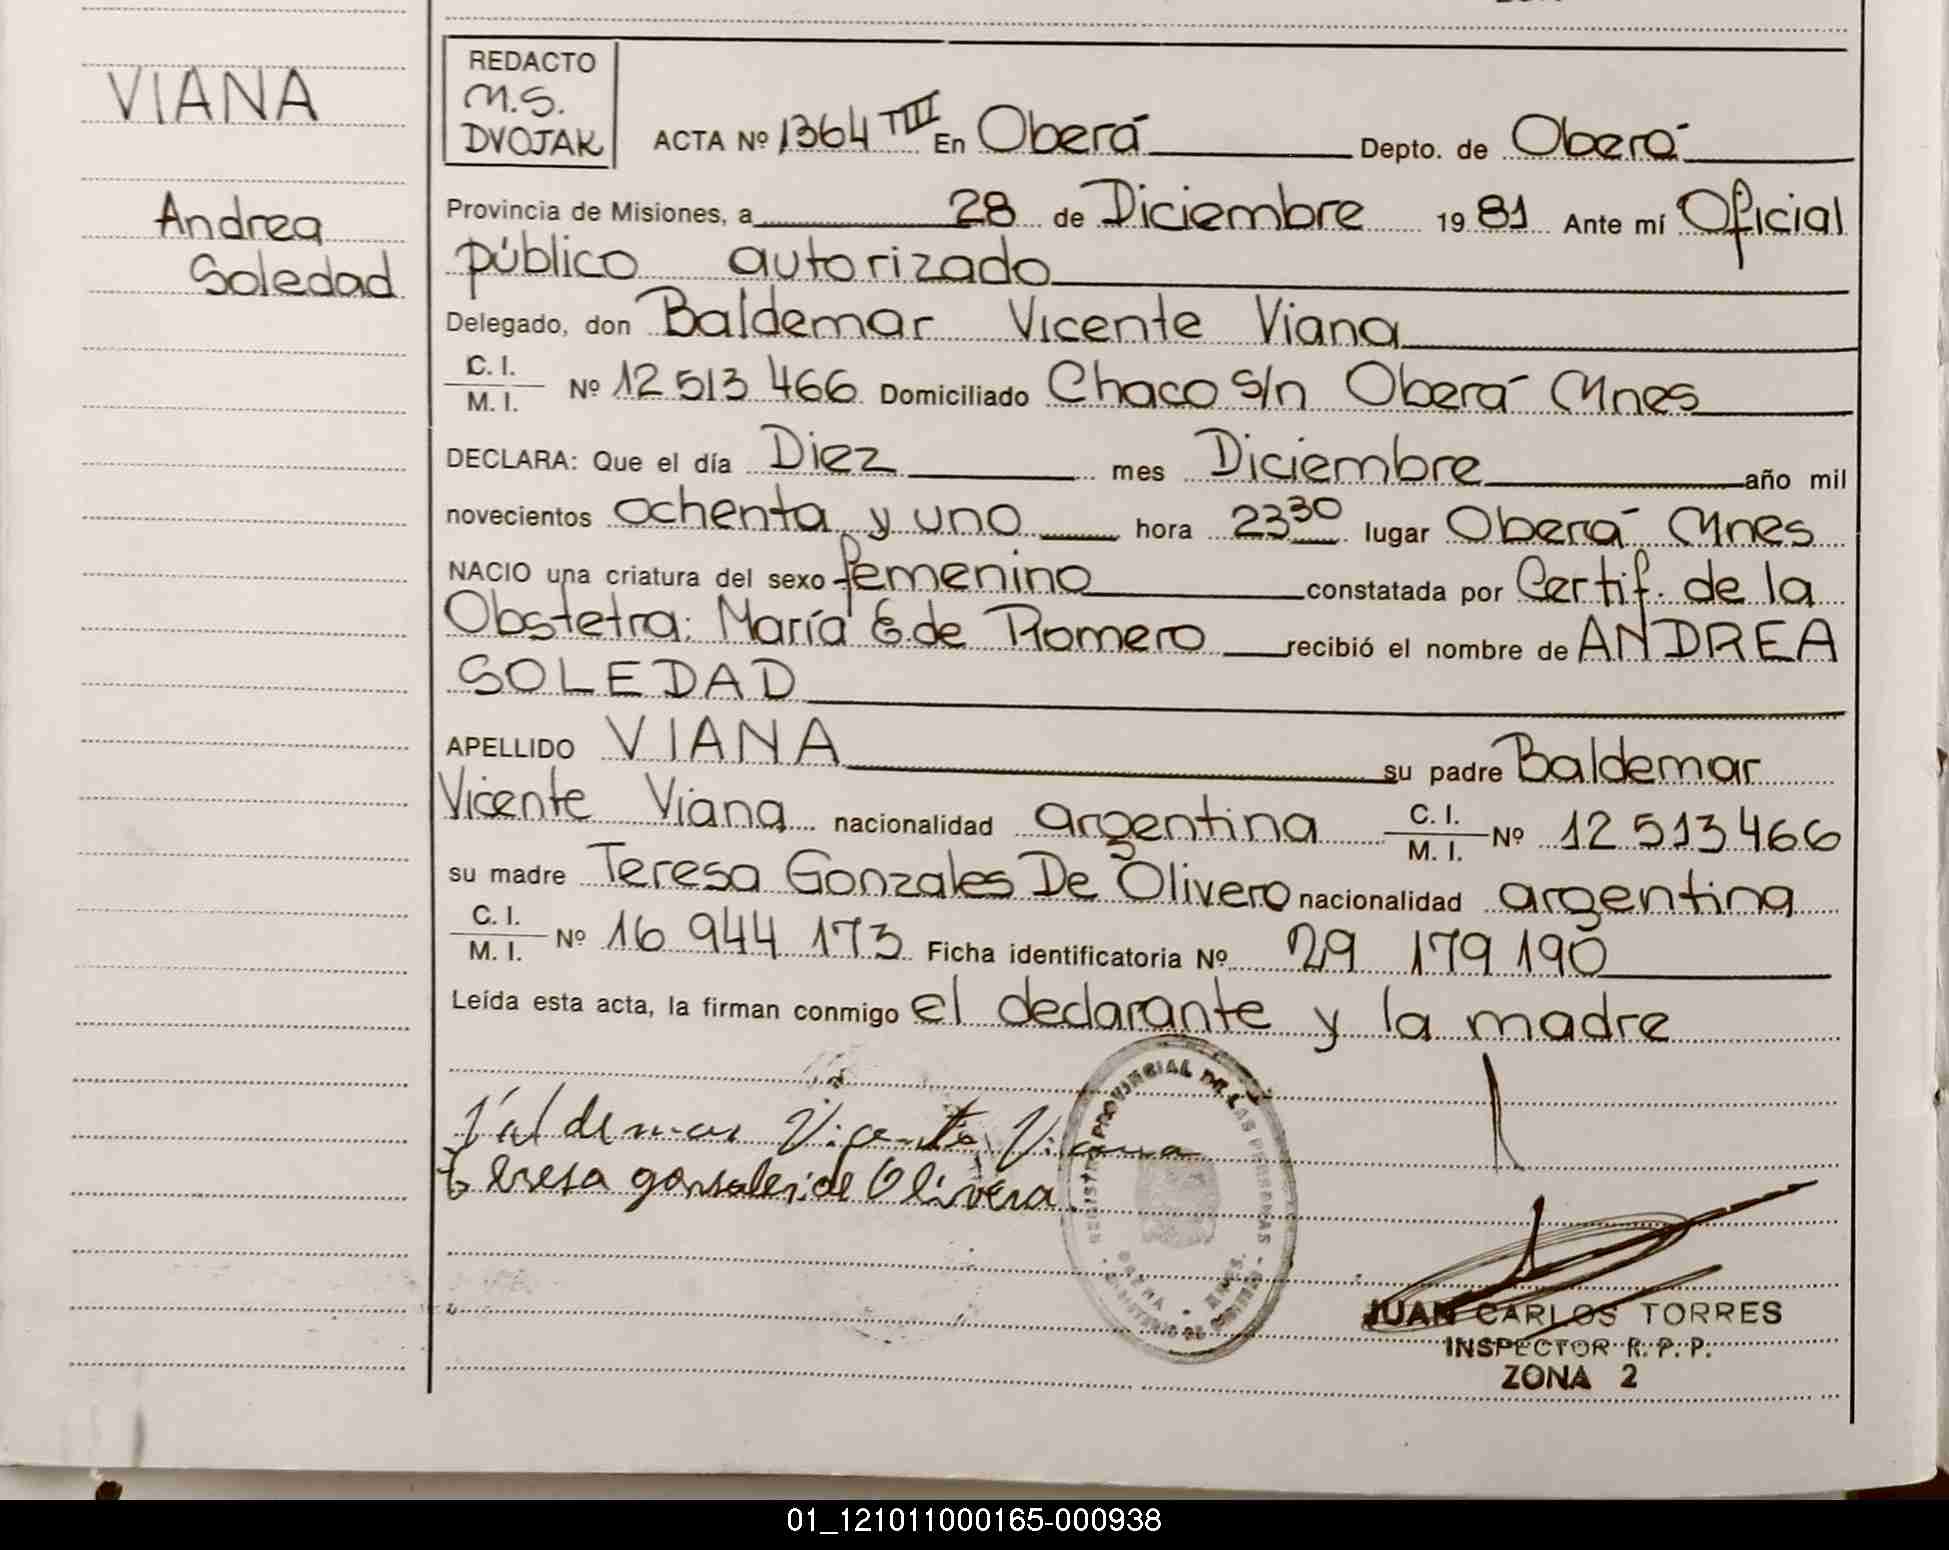 VIANA
Andrea
Soledad
REDACTO
M.S.
DVOJAK
ACTA Nº 1364 TIII En Oberá Depto. de Oberá
Provincia de Misiones, a 28 de Diciembre 1981 Ante mí Oficial
público autorizado
Delegado, don Baldemar Vicente Viana
C. I.
M. I. Nº 12 513 466 Domiciliado Chaco s/n Oberá Mnes
DECLARA: Que el día Diez mes Diciembre año mil
novecientos ochenta y uno hora 23 30 lugar Oberá Mnes
NACIO una criatura del sexo femenino constatada por Certif. de la
Obstetra: María E. de Romero recibió el nombre de ANDREA
SOLEDAD
APELLIDO VIANA su padre Baldemar
Vicente Viana nacionalidad argentina C. I. M. I. Nº 12 513 466
su madre Teresa Gonzales De Olivero nacionalidad argentina
C. I.
M. I. Nº 16 944 173 Ficha identificatoria Nº 29 179 190
Leída esta acta, la firman conmigo el declarante y la madre
Valdemar Vicente Viana
teresa gonsales de Olivera
REGISTRO PROVINCIAL DE LAS PERSONAS
JUAN CARLOS TORRES
INSPECTOR R. P. P.
ZONA 2
01_121011000165-000938